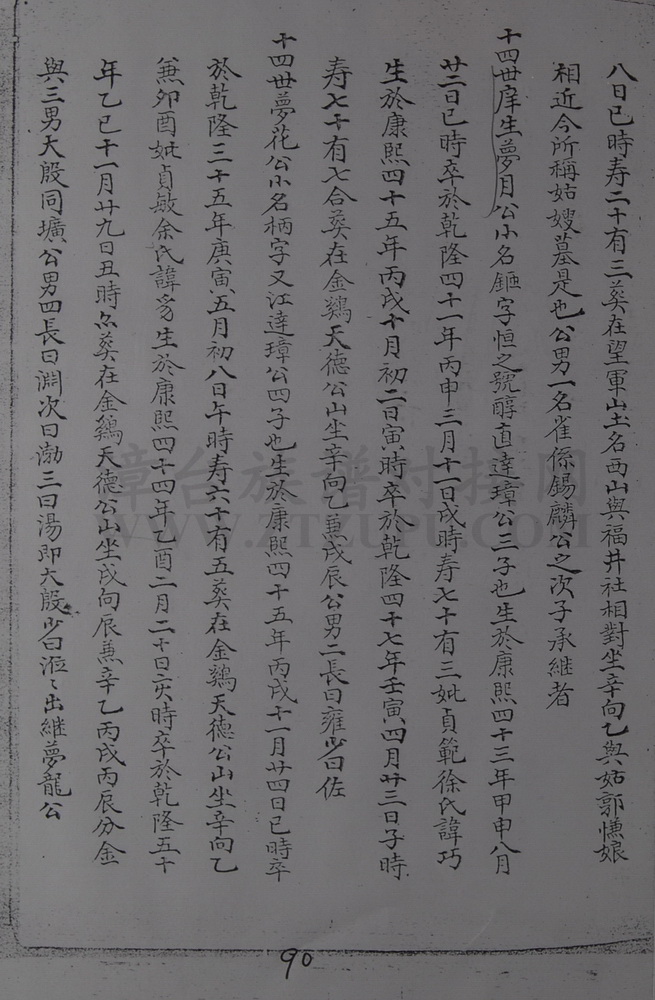 八日巳時寿二十有三葬在望軍山土名西山與福井社相對坐辛向乙與姑郭慊娘
相近今所稱姑嫂墓是也公男一名雀係錫麟公之次子承継者
十四世庠生夢月公小名鉔字恒之號醇直達璋公三子也生於康熙四十三年甲申八月
廿二日巳時卒於乾隆四十一年丙申三月十一日戌時寿七十有三妣貞範徐氏諱巧
生於康熙四十五年丙戌十月初二日寅時卒於乾隆四十七年壬寅四月廿三日子時
寿七十有七合葬在金鷄天德公山坐辛向乙兼戌辰公男二長曰雍少曰佐
十四世夢花公小名柄字又江達璋公四子也生於康熙四十五年丙戌十一月廿四日巳時卒
於乾隆三十五年庚寅五月初八日午時寿六十有五葬在金鷄天德公山坐辛向乙
兼卯酉妣貞敏余氏諱生於康熙四十四年乙酉二月二十日亥時卒於乾隆五十
年乙巳十一月廿九日丑時尒葬在金鷄天德公山坐戌向辰兼辛乙丙戌丙辰分金
與三男大殷同壙公男四長曰淵次曰渤三曰湯即大殷少曰出継夢龍公
漳台族谱对接网
WWW.ZTZUPU.COM
90